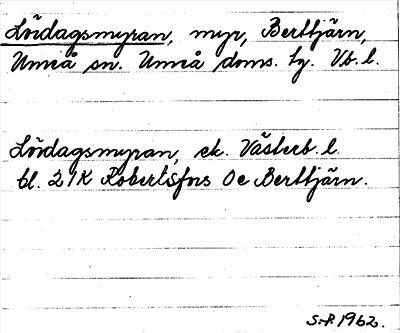 Lördagsmyran, myr, Berttjärn,
Umeå sn. Umeå doms. tg. Vb. l.
Lördagsmyran, ek. Västerb. l.
bl. 21K Robertsfors 0e Berttjärn.
S.P. 1962.